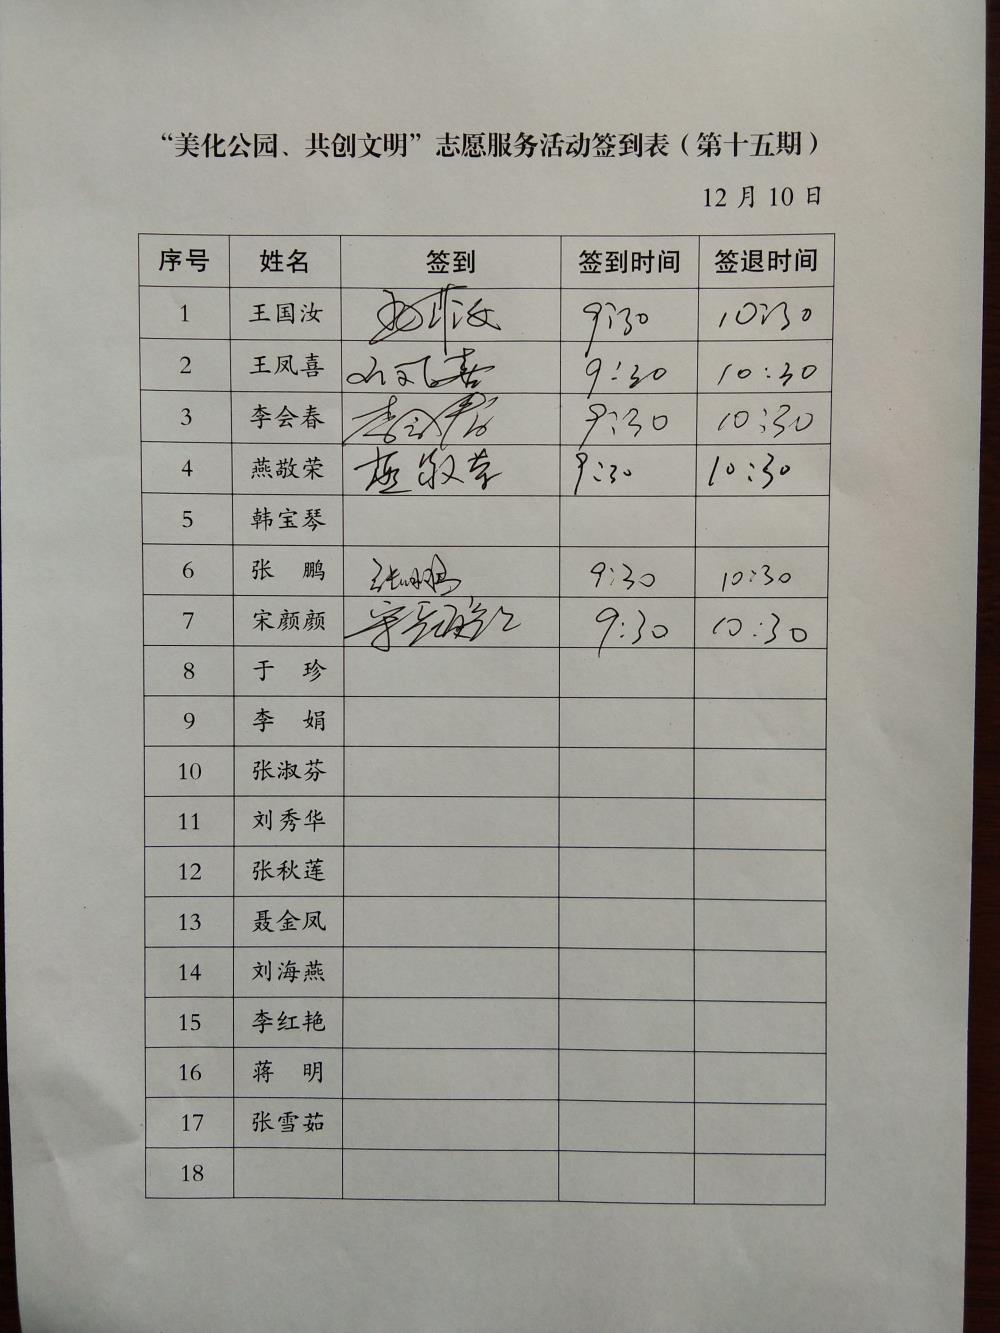 “美化公园、共创文明”志愿服务活动签到表（第十五期）
12 月 10 日
序号 姓名 签到 签到时间 签退时间
1 王国汝 王国汝 9:30 10:30
2 王凤喜 王凤喜 9:30 10:30
3 李会春 李会春 9:30 10:30
4 燕敬荣 燕敬荣 9:30 10:30
5 韩宝琴
6 张 鹏 张鹏 9:30 10:30
7 宋颜颜 宋颜颜 9:30 10:30
8 于 珍
9 李 娟
10 张淑芬
11 刘秀华
12 张秋莲
13 聂金凤
14 刘海燕
15 李红艳
16 蒋 明
17 张雪茹
18